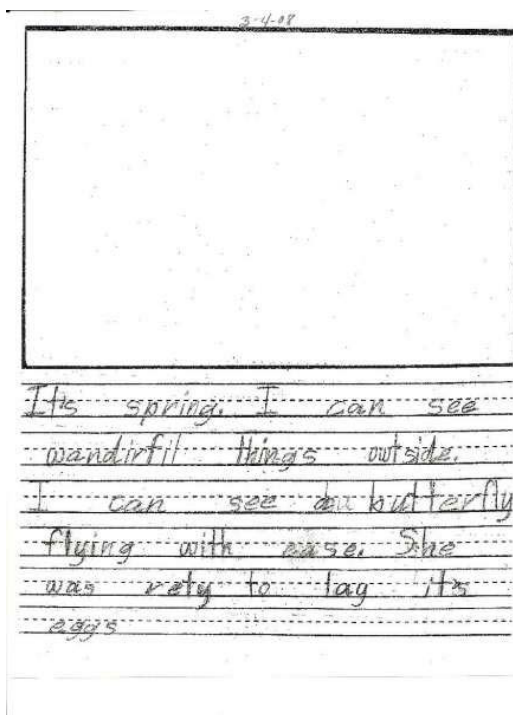 3-4-08
It's spring. I can see
wandirfil things owtside.
I can see a butterfly
flying with ease. She
was rety to lay it's
eggs